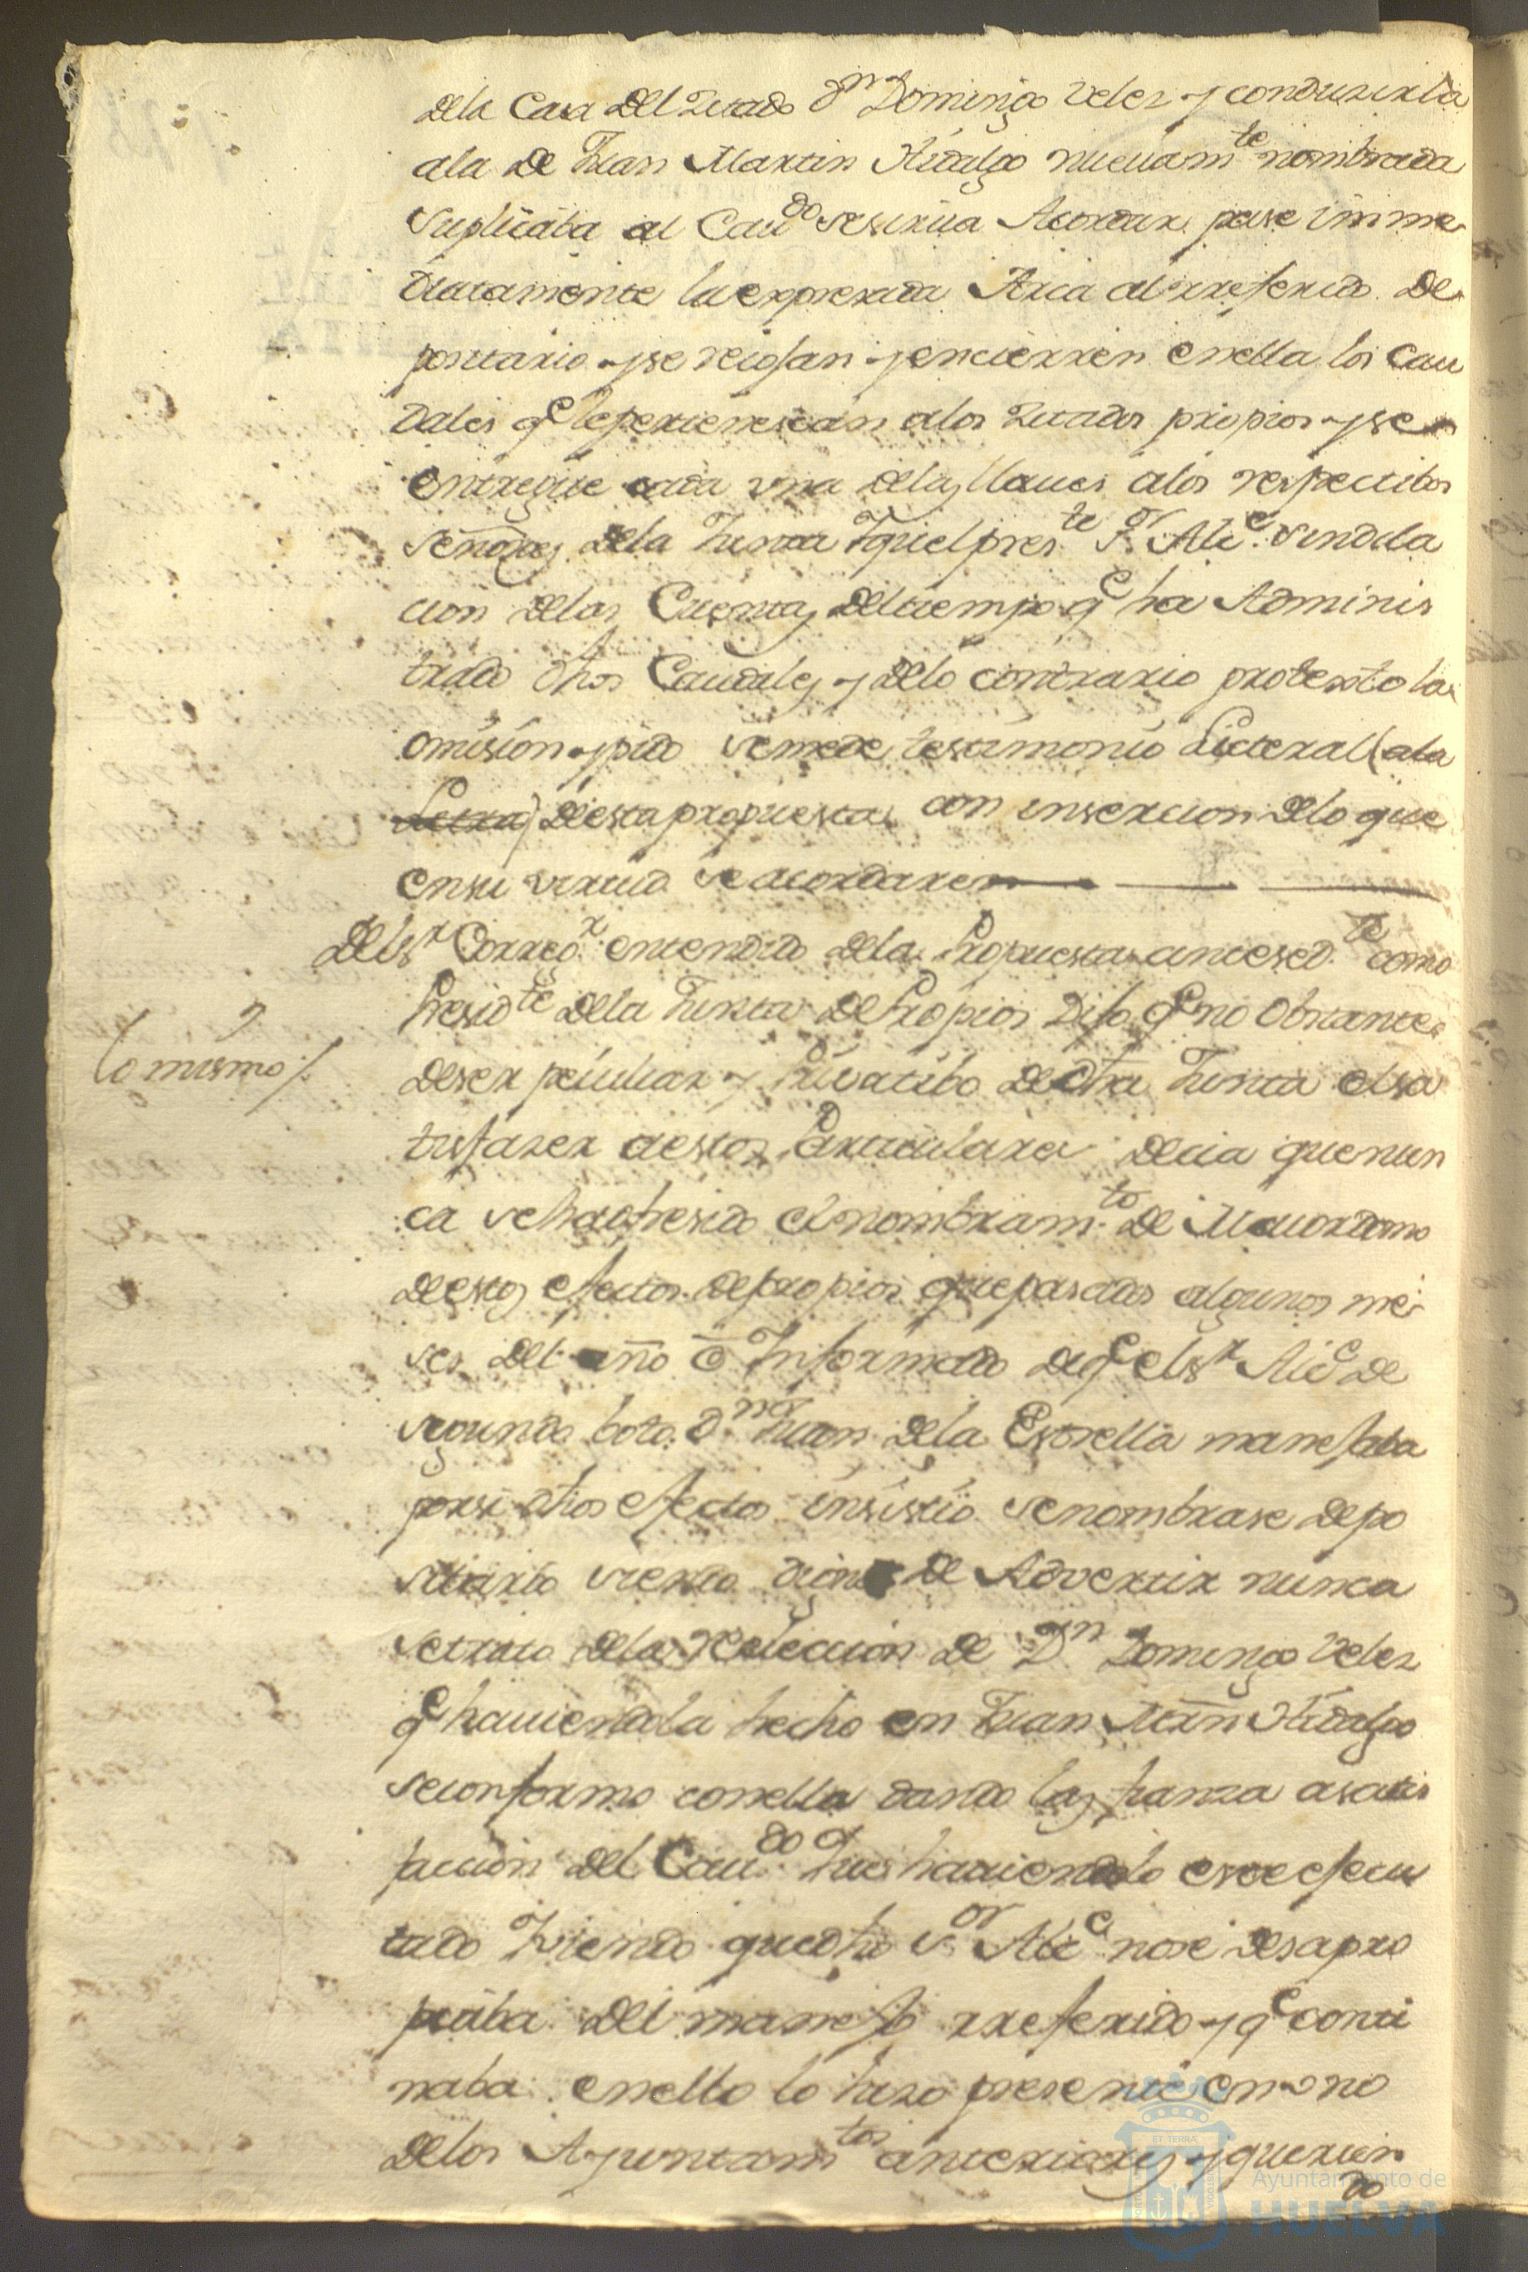 dela Casa del Zitado Dn Domingo Velez y conduzirla
ala de Juan Martin Hidalgo nuevamte nombrada
Suplicaba al Cavdo se sirva Acordar pase imme
diatamente la expresada Arca al rreferido De
positario y se recojan y encierren en ella los Cau
dales qe le pertenescan a los Zitados propios y se
entregue cada una de las llaves alos respectibos
señores dela Junta Y quel preste Sor Alce rinda la
cion de las Cuentas del tiempo qe ha Adminis
trado dhos Caudales y delo contrario protesto la
omision y pido se me de testimonio Licteral (ala
Letra) de esta propuesta con insercion delo que
en su virtud se acordare
Del sr Corregr entendido dela Propuesta antesedte como
Presidte dela Junta de Propios Dijo qe no Obstante
de ser peculiar y Privatibo de dha Junta el sa
tisfazer a estos Particulares decia que nun
ca se ha ofresido el nombramto de Mauordomo
de estos efectos de propios que pasados algunos me
ses del año e Informado de qe el sr Alce de
segundo boto Dn Juan dela Estrella manejaba
por si dhos efectos insistio se nombrase depo
sitario siendo digno de Advertir nunca
se trato dela relección de Dn Domingo Velez
qe haviendola hecho en Juan Mrn Hidalgo
se conformo con ella dando las fianza a satis
faccion del Cavdo Que haviendolo este ejecu
tado Y viendo que dho sor Alce no se desapro
piaba del manejo rreferido y qe conti
naba en ello lo hizo presente en uno
delos Ayuntamtos anteriores y querien
do
lo mismo
ET TERRA
Ayuntamiento de
HUELVA